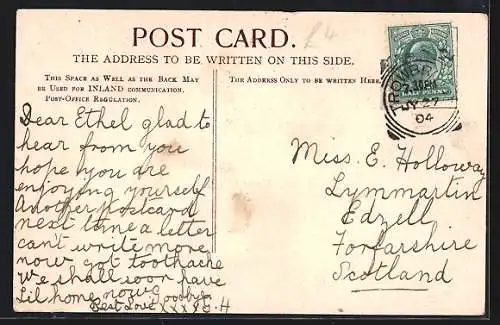 POST CARD.
£4
THE ADDRESS TO BE WRITTEN ON THIS SIDE.
THIS SPACE AS WELL AS THE BACK MAY
BE USED FOR INLAND COMMUNICATION.
POST-OFFICE REGULATION.
Dear Ethel glad to
hear from you
hope you are
enjoying yourself
Another postcard
next time a letter
can't write more
now got toothache
We shall soon have
Lil home now Goodbye
Best Love XXXXX H
THE ADDRESS ONLY TO BE WRITTEN HERE.
HALF PENNY
TROWBRI
7.30 PM
27
04
Miss. E. Holloway
Lymmartin
Edzell
Forfarshire
Scotland